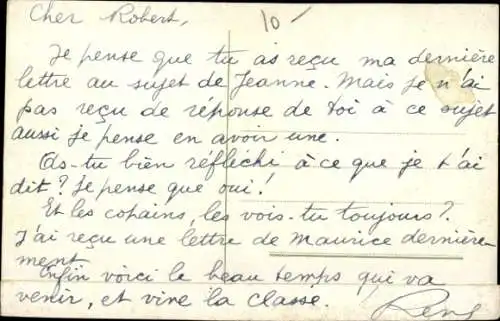 Cher Robert,
10-
Je pense que tu as reçu ma dernière
lettre au sujet de Jeanne. Mais je n'ai
pas reçu de réponse de toi à ce sujet
aussi je pense en avoir une.
As-tu bien réfléchi à ce que je t'ai
dit ? Je pense que oui !
Et les copains, les vois-tu toujours ?
J'ai reçu une lettre de Maurice dernière-
ment
Enfin voici le beau temps qui va
venir, et vive la classe.